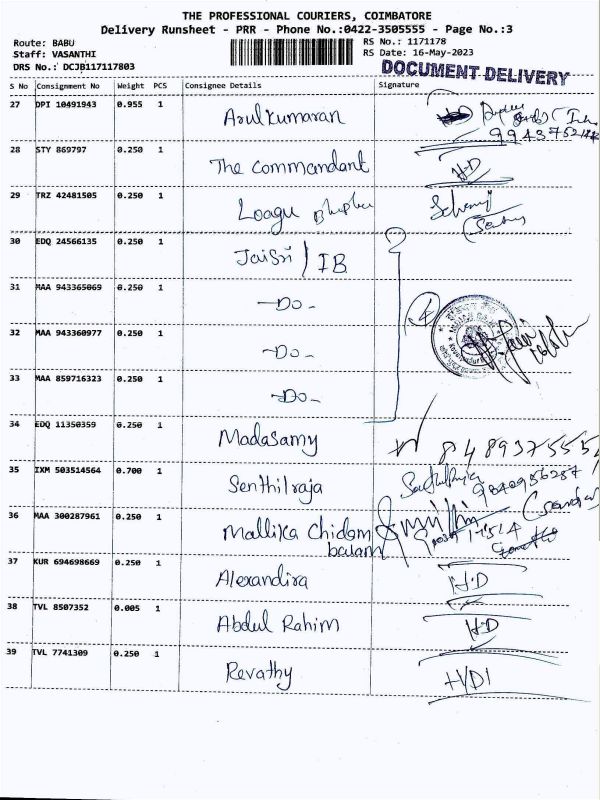 THE PROFESSIONAL COURIERS, COIMBATORE
Delivery Runsheet - PRR - Phone No.:0422-3505555 - Page No.:3
Route: BABU RS No.: 1171178
Staff: VASANTHI RS Date: 16-May-2023
DRS No.: DCJB117117803 DOCUMENT DELIVERY
S No Consignment No Weight PCS Consignee Details Signature
27 DPI 10491943 0.955 1 Arulkumaran
28 STY 869797 0.250 1 The Commandant H-D
29 TRZ 42481505 0.250 1 Loagu
30 EDQ 24566135 0.250 1 Jaisri / IB
31 MAA 943365069 0.250 1 -Do-
32 MAA 943360977 0.250 1 -Do-
33 MAA 859716323 0.250 1 -Do-
34 EDQ 11350359 0.250 1 Madasamy 8489375554
35 IXM 503514564 0.700 1 Senthilraja
36 MAA 300287961 0.250 1 Mallika Chidam
balam
37 KUR 694698669 0.250 1 Alexandira H-D
38 TVL 8507352 0.005 1 Abdul Rahim H-D
39 TVL 7741309 0.250 1 Revathy